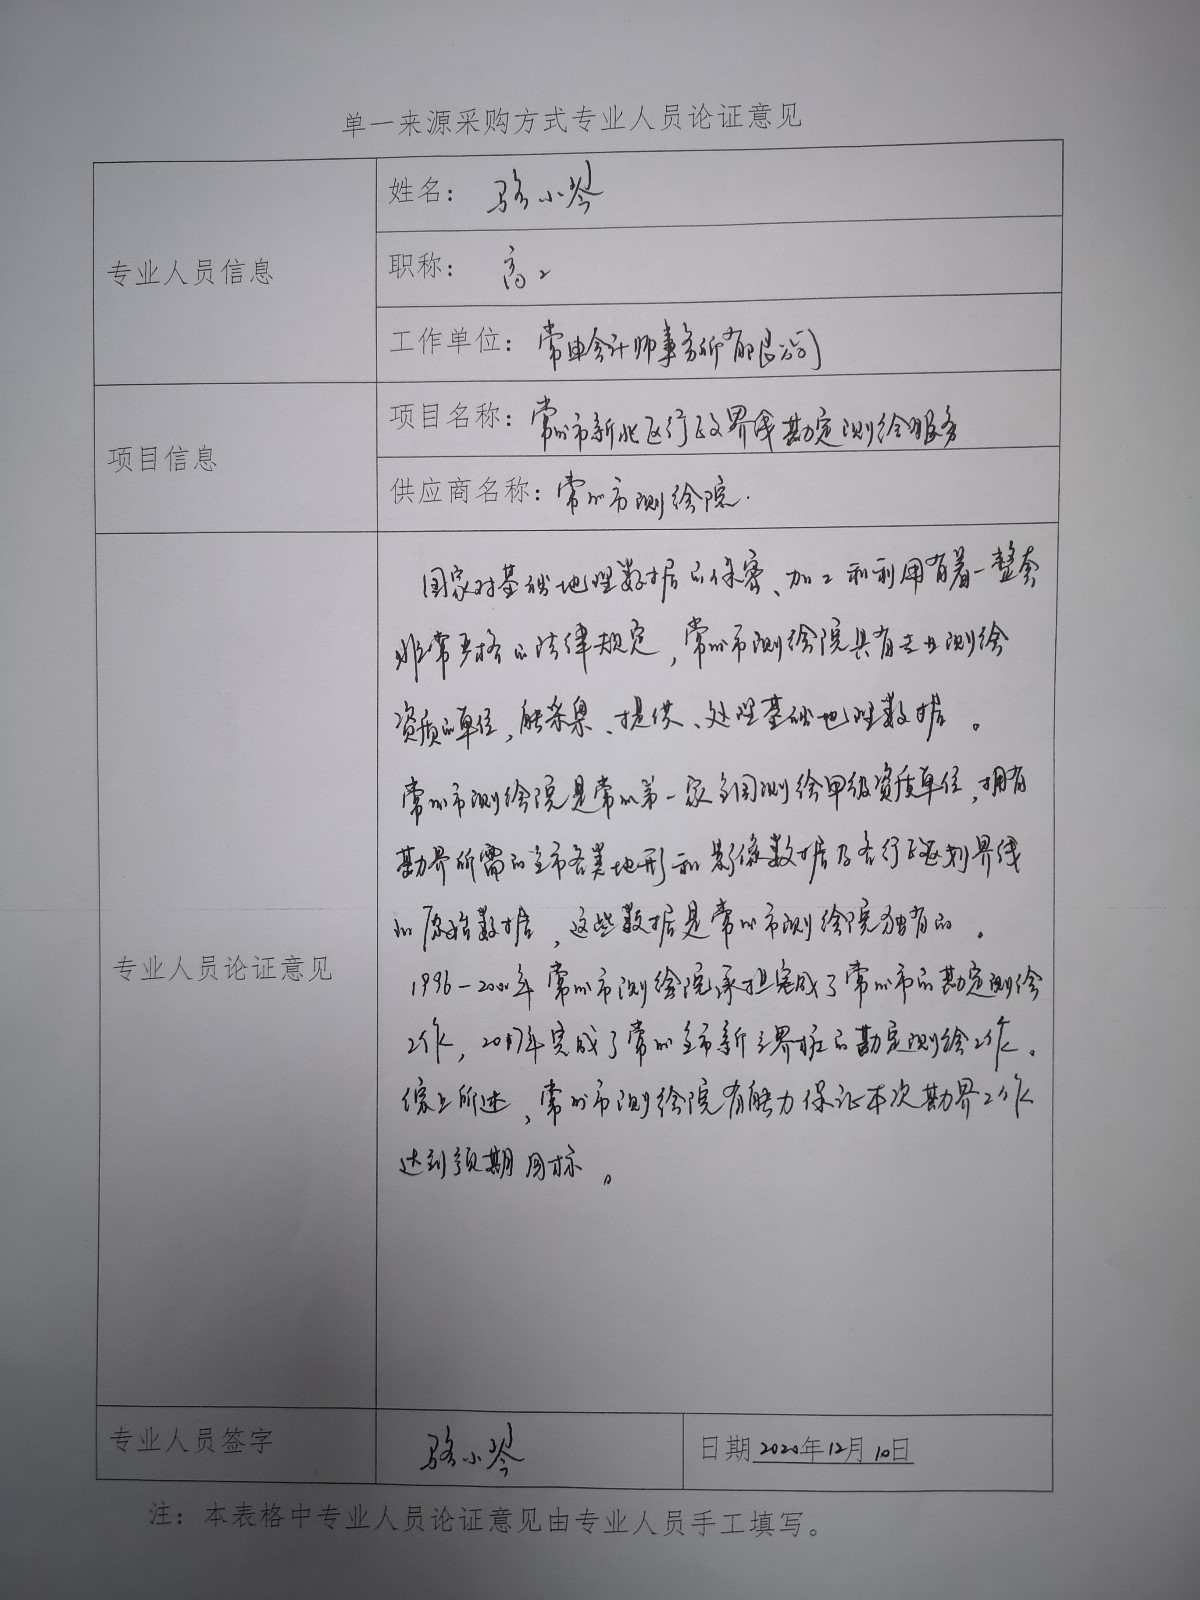 单一来源采购方式专业人员论证意见
专业人员信息
姓名：骆小琴
职称：高工
工作单位：常申会计师事务所有限公司
项目信息
项目名称：常州市新北区行政界线勘定测绘服务
供应商名称：常州市测绘院.
专业人员论证意见
国家对基础地理数据的保密、加工和利用有着一整套
非常严格的法律规定，常州市测绘院具有专业测绘
资质的单位，能采集、提供、处理基础地理数据。
常州市测绘院是常州第一家全国测绘甲级资质单位，拥有
勘界所需的全市各类地形和影像数据及各行政区划界线
的原始数据，这些数据是常州市测绘院独有的。
1996-2000年常州市测绘院承担完成了常州市的勘定测绘
工作，2017年完成了常州全市新立界桩的勘定测绘工作。
综上所述，常州市测绘院有能力保证本次勘界工作
达到预期目标。
专业人员签字
骆小琴
日期2020年12月10日
注：本表格中专业人员论证意见由专业人员手工填写。